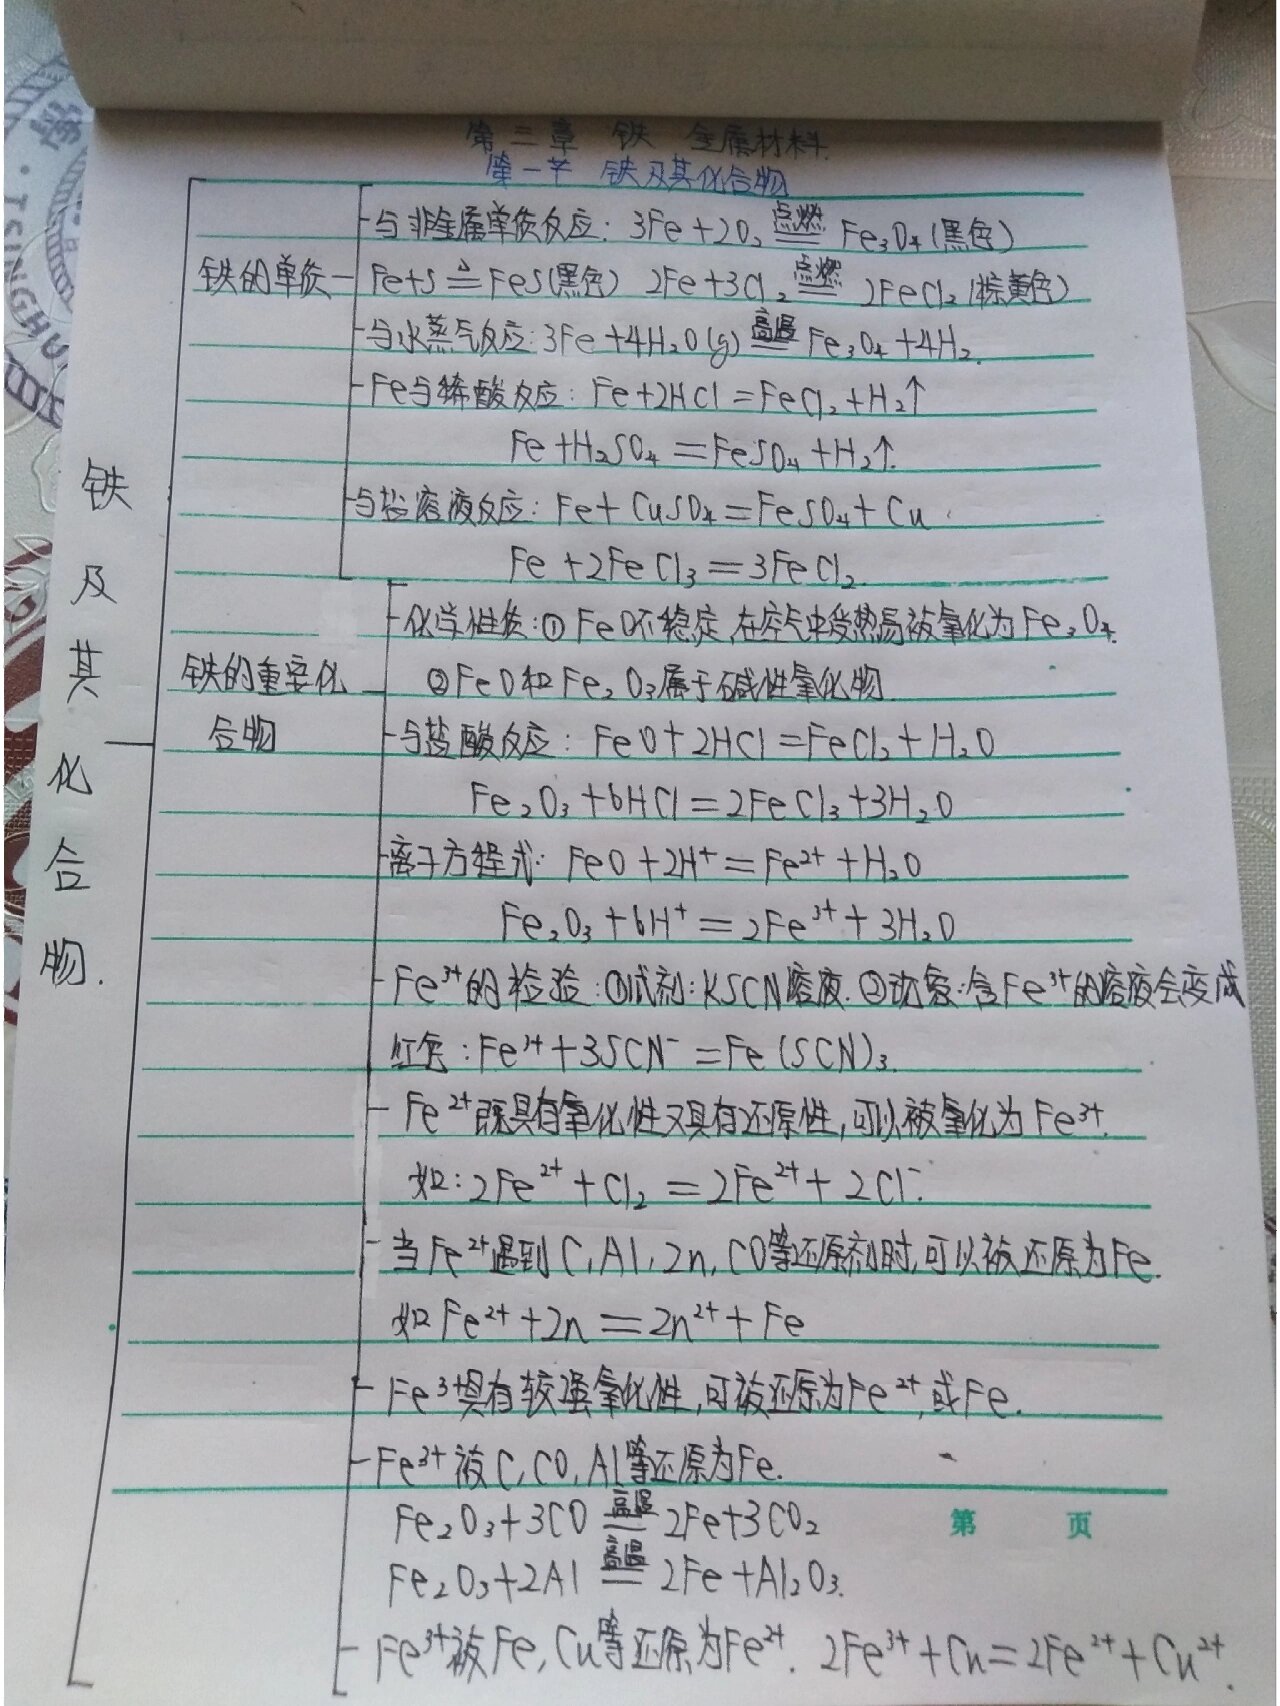 第三章 铁 金属材料.
第一节 铁及其化合物
铁及其化合物.
铁的单质
与非金属单质反应: 3Fe+2O₂ 点燃 Fe₃O₄(黑色)
Fe+S △ FeS(黑色) 2Fe+3Cl₂ 点燃 2FeCl₂(棕黄色)
与水蒸气反应: 3Fe+4H₂O(g) 高温 Fe₃O₄+4H₂.
Fe与稀酸反应: Fe+2HCl=FeCl₂+H₂↑
Fe+H₂SO₄=FeSO₄+H₂↑.
与盐溶液反应: Fe+CuSO₄=FeSO₄+Cu
Fe+2FeCl₃=3FeCl₂.
铁的重要化
合物
化学性质:①FeO不稳定,在空气中受热易被氧化为Fe₃O₄.
②FeO和Fe₂O₃属于碱性氧化物.
与盐酸反应: FeO+2HCl=FeCl₂+H₂O
Fe₂O₃+6HCl=2FeCl₃+3H₂O
离子方程式: FeO+2H⁺=Fe²⁺+H₂O
Fe₂O₃+6H⁺=2Fe³⁺+3H₂O
Fe³⁺的检验:①试剂:KSCN溶液.②现象:含Fe³⁺的溶液会变成
红色:Fe³⁺+3SCN⁻=Fe(SCN)₃.
Fe²⁺既具有氧化性又具有还原性,可以被氧化为Fe³⁺.
如:2Fe²⁺+Cl₂=2Fe²⁺+2Cl⁻.
当Fe²⁺遇到C,Al,Zn,CO等还原剂时,可以被还原为Fe.
如Fe²⁺+Zn=Zn²⁺+Fe
Fe³⁺具有较强氧化性,可被还原为Fe²⁺,或Fe.
Fe³⁺被C,CO,Al等还原为Fe.
Fe₂O₃+3CO 高温 2Fe+3CO₂
Fe₂O₃+2Al 高温 2Fe+Al₂O₃.
第 页
Fe³⁺被Fe,Cu等还原为Fe²⁺. 2Fe³⁺+Cu=2Fe²⁺+Cu²⁺.
TSINGHU